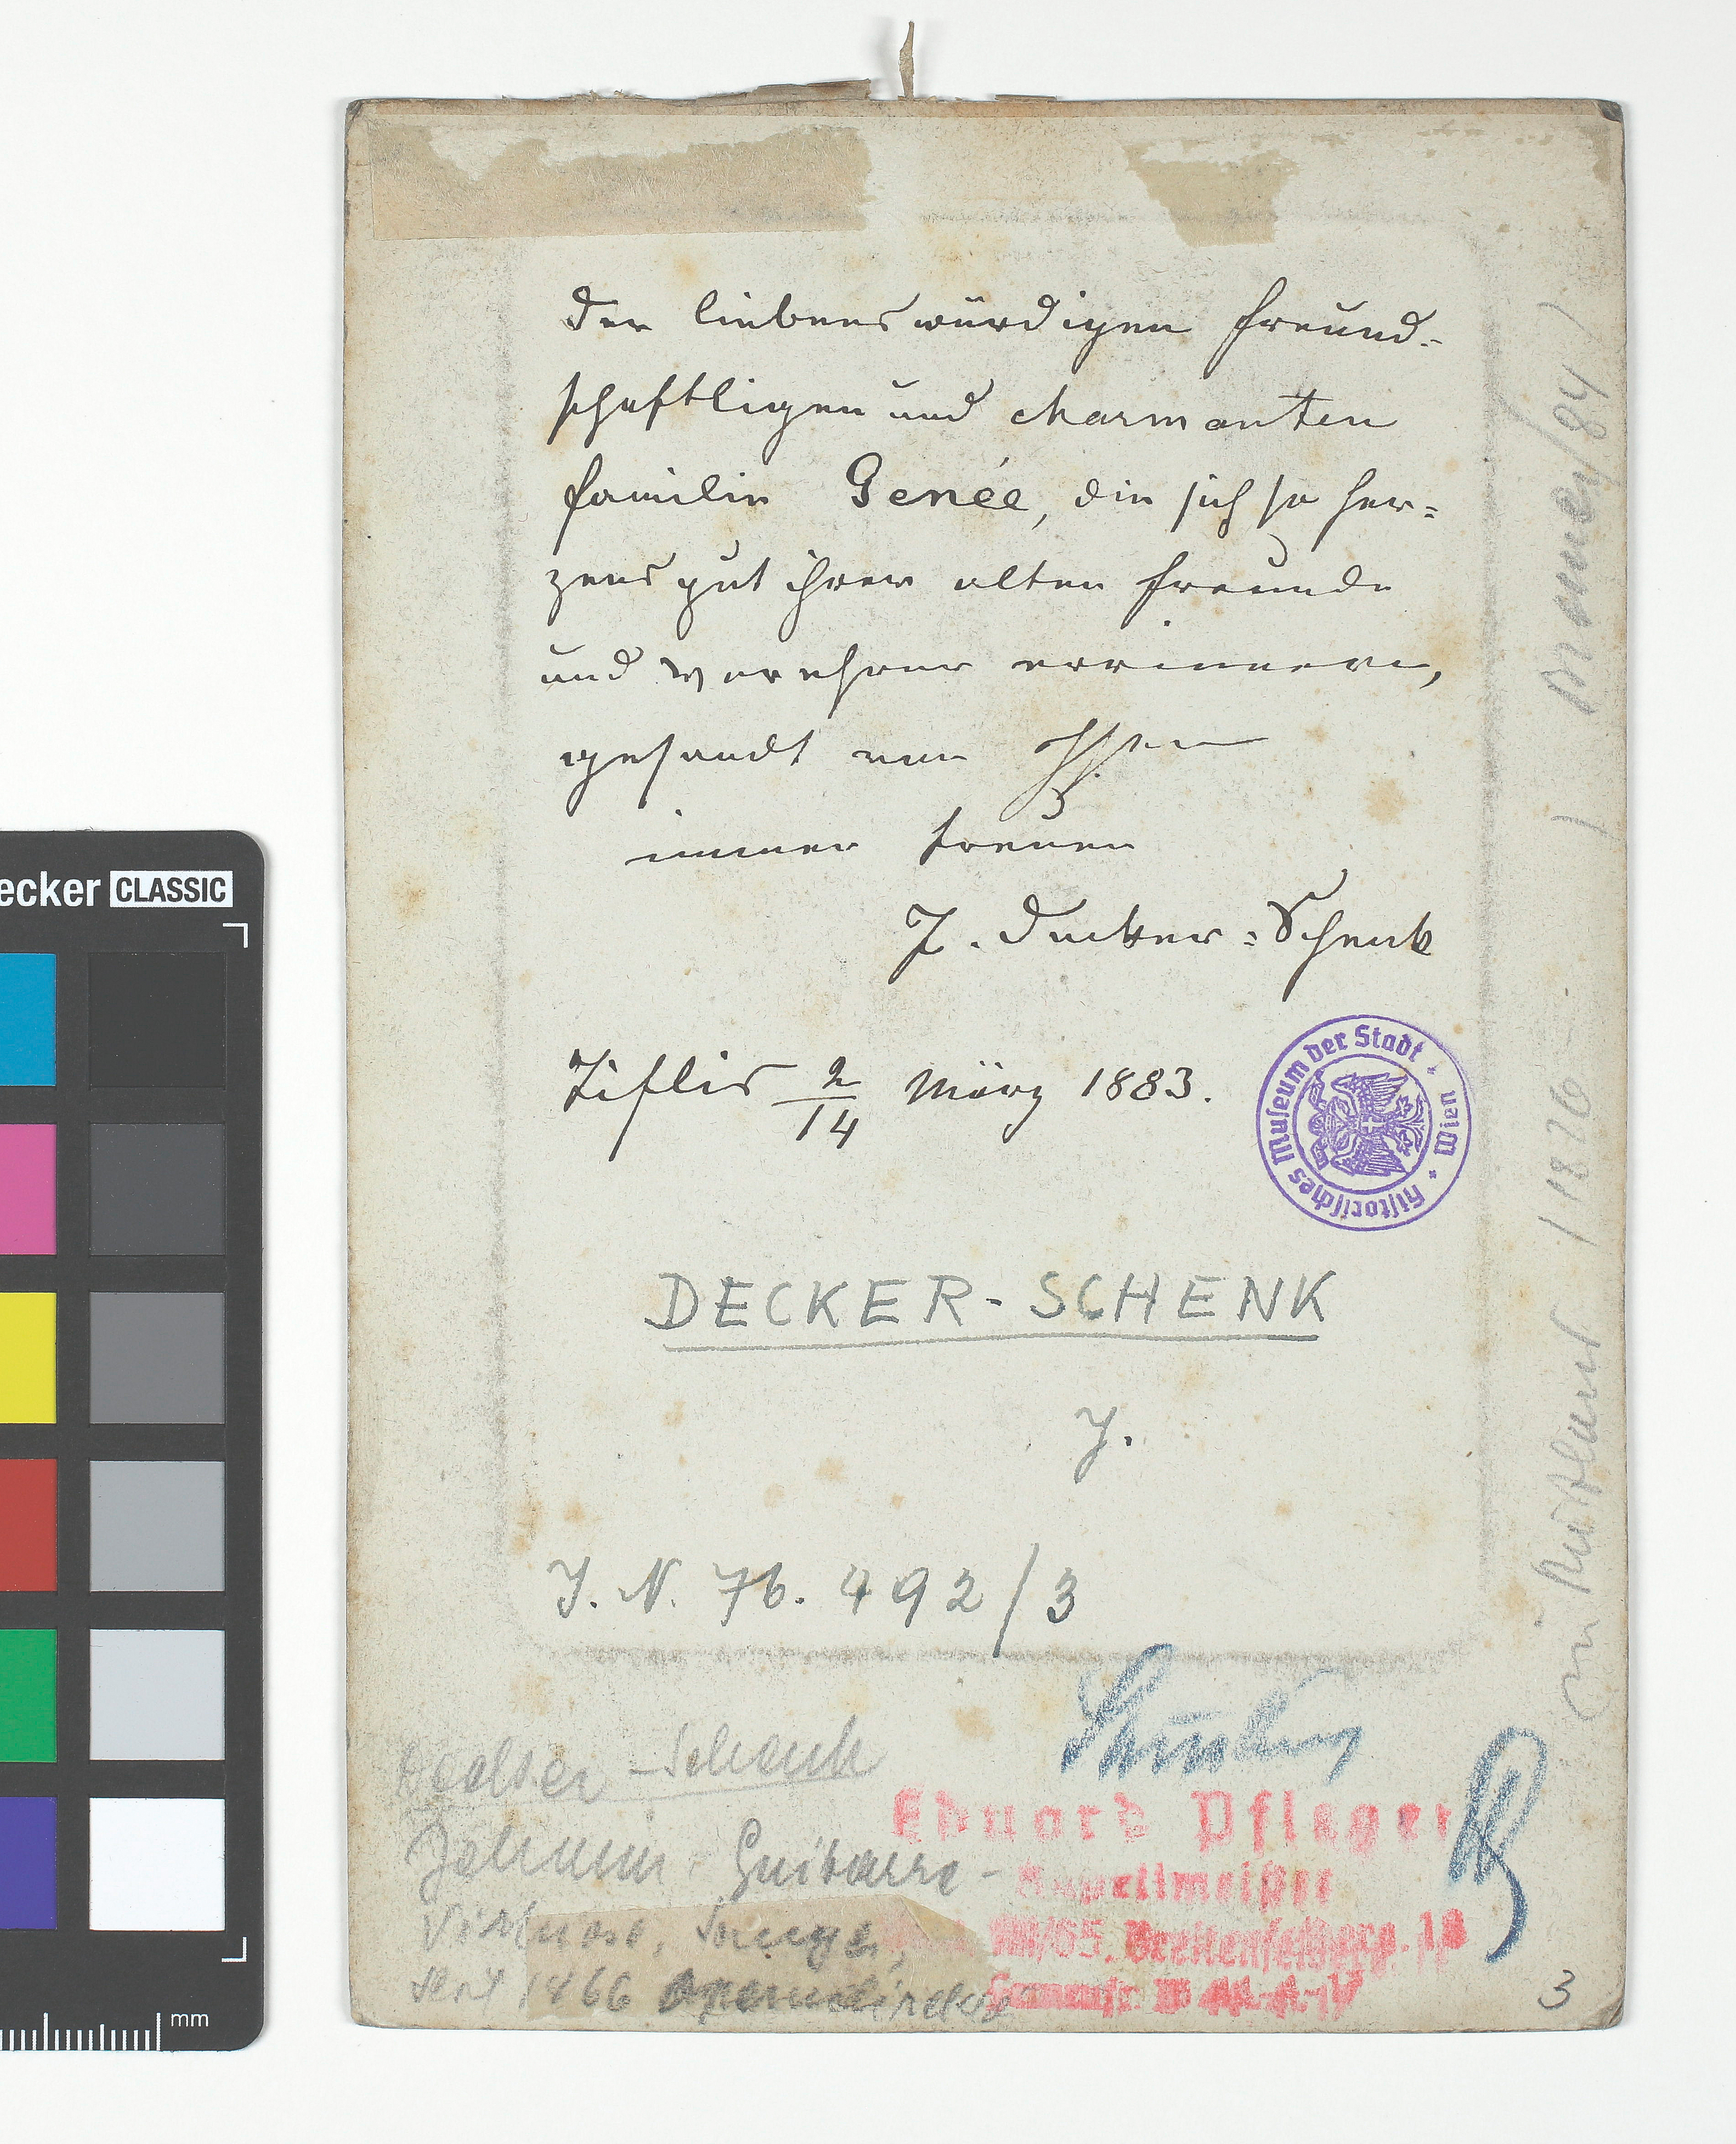 Der liebenswürdigen freund-
schaftligen und charmanten
Familie Genée, die sich so her-
zensgut ihrer alten Freunde
und Verehrer errinnern,
gesandt von Ihren
immer treuen
J. Decker-Schenk
Tiflis 2/14 März 1883.
Historisches Museum der Stadt Wien
DECKER-SCHENK
J.
J. N. 76.492/3
Decker-Schenk
Johann, Guitarre-
Virtuose, Sänger,
seit 1866 Operndirektor
in Rußland (1826–
3
Eduard Pfleger
Kapellmeister
VIII/65. Breitenfelderg. 18
ecker CLASSIC
mm